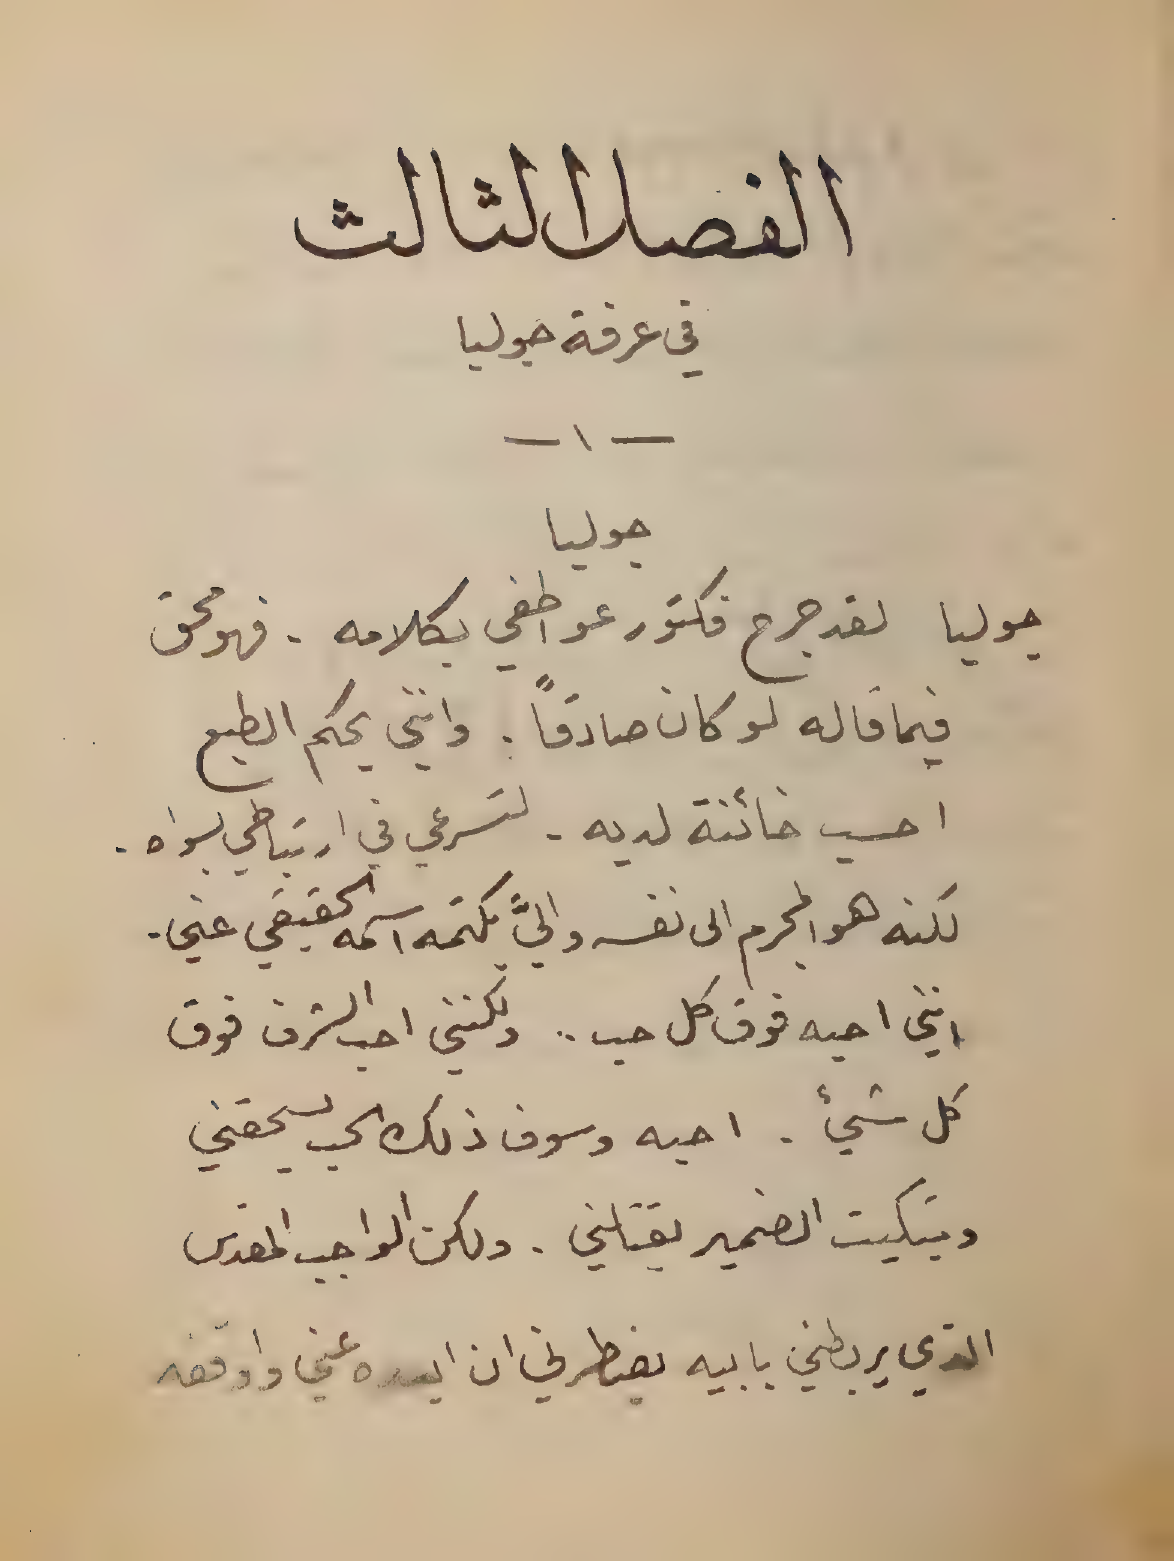 الفصل الثالث
في غرفة جوليا
— ١ —
جوليا
جوليا لقد جرح فكتور عواطفي بكلامه . فهو محق
فيما قاله لو كان صادقاً . وانني بحكم الطبع
احسب خائنة لديه . لتسرعي في ارتباطي بسواه .
لكنه هو المجرم الى نفسه واليَّ بكتمه اسمه الحقيقي عني .
انني احبه فوق كل حب .. ولكنني احب الشرف فوق
كل شيءٍ . احبه وسوف ذلك الحب يسحقني
وتبكيت الضمير يقتلني . ولكن الواجب المقدس
الذي يربطني بابيه يضطرني ان ابعده عني واوقفه